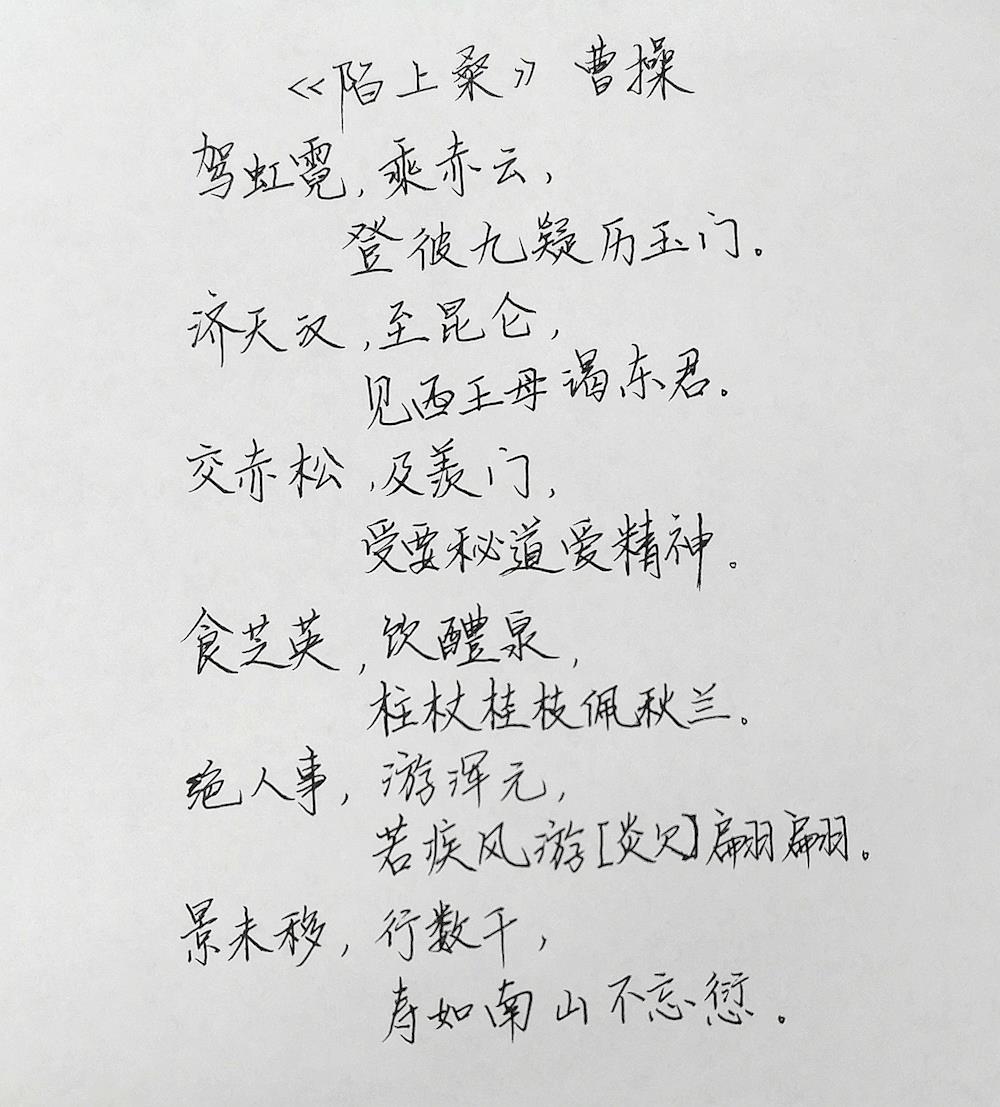 《陌上桑》曹操
驾虹霓,乘赤云,
登彼九疑历玉门。
济天汉,至昆仑,
见西王母谒东君。
交赤松,及羡门,
受要秘道爱精神。
食芝英,饮醴泉,
柱杖桂枝佩秋兰。
绝人事,游浑元,
若疾风游[炎欠]翩翩。
景未移,行数千,
寿如南山不忘愆。